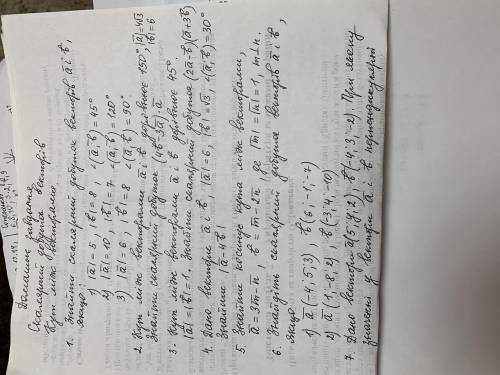 Домашнє завдання
Скалярний добуток векторів
Кут між векторами
1. Знайти скалярний добуток векторів a̅ і b̅,
якщо
1) |a̅| = 5, |b̅| = 8 ∠(a̅, b̅) = 45°
2) |a̅| = 10, |b̅| = 7 ∠(a̅, b̅) = 120°
3) |a̅| = 6, |b̅| = 8 ∠(a̅, b̅) = 90°
2. Кут між векторами a̅ і b̅ дорівнює 150° |a̅|=4√3
Знайти скалярний добуток (4b̅-3a̅)·a̅ |b̅|=6
3. Кут між векторами a̅ і b̅ дорівнює 45°
|a̅|=|b̅|=1. Знайти скалярний добуток (2a̅-b̅)(a̅+3b̅)
4. Дано вектори a̅ і b̅, |a̅|=6, |b̅|=√3, ∠(a̅,b̅)=30°
Знайти |a̅-4b̅|
5. Знайти косинус кута між векторами,
a̅=3m̅-n̅, b̅=m̅-2n̅ де |m̅|=|n̅|=1, m⊥n.
6. Знайдіть скалярний добуток векторів a̅ і b̅,
якщо
1) a̅(-4,5,3), b̅(6,-1,-7)
2) a̅(1,-8,2), b̅(-3,4,-10)
7. Дано вектори a̅(5,y,2), b̅(-4,3,-2). При якому
значенні y вектори a̅ і b̅ перпендикулярні